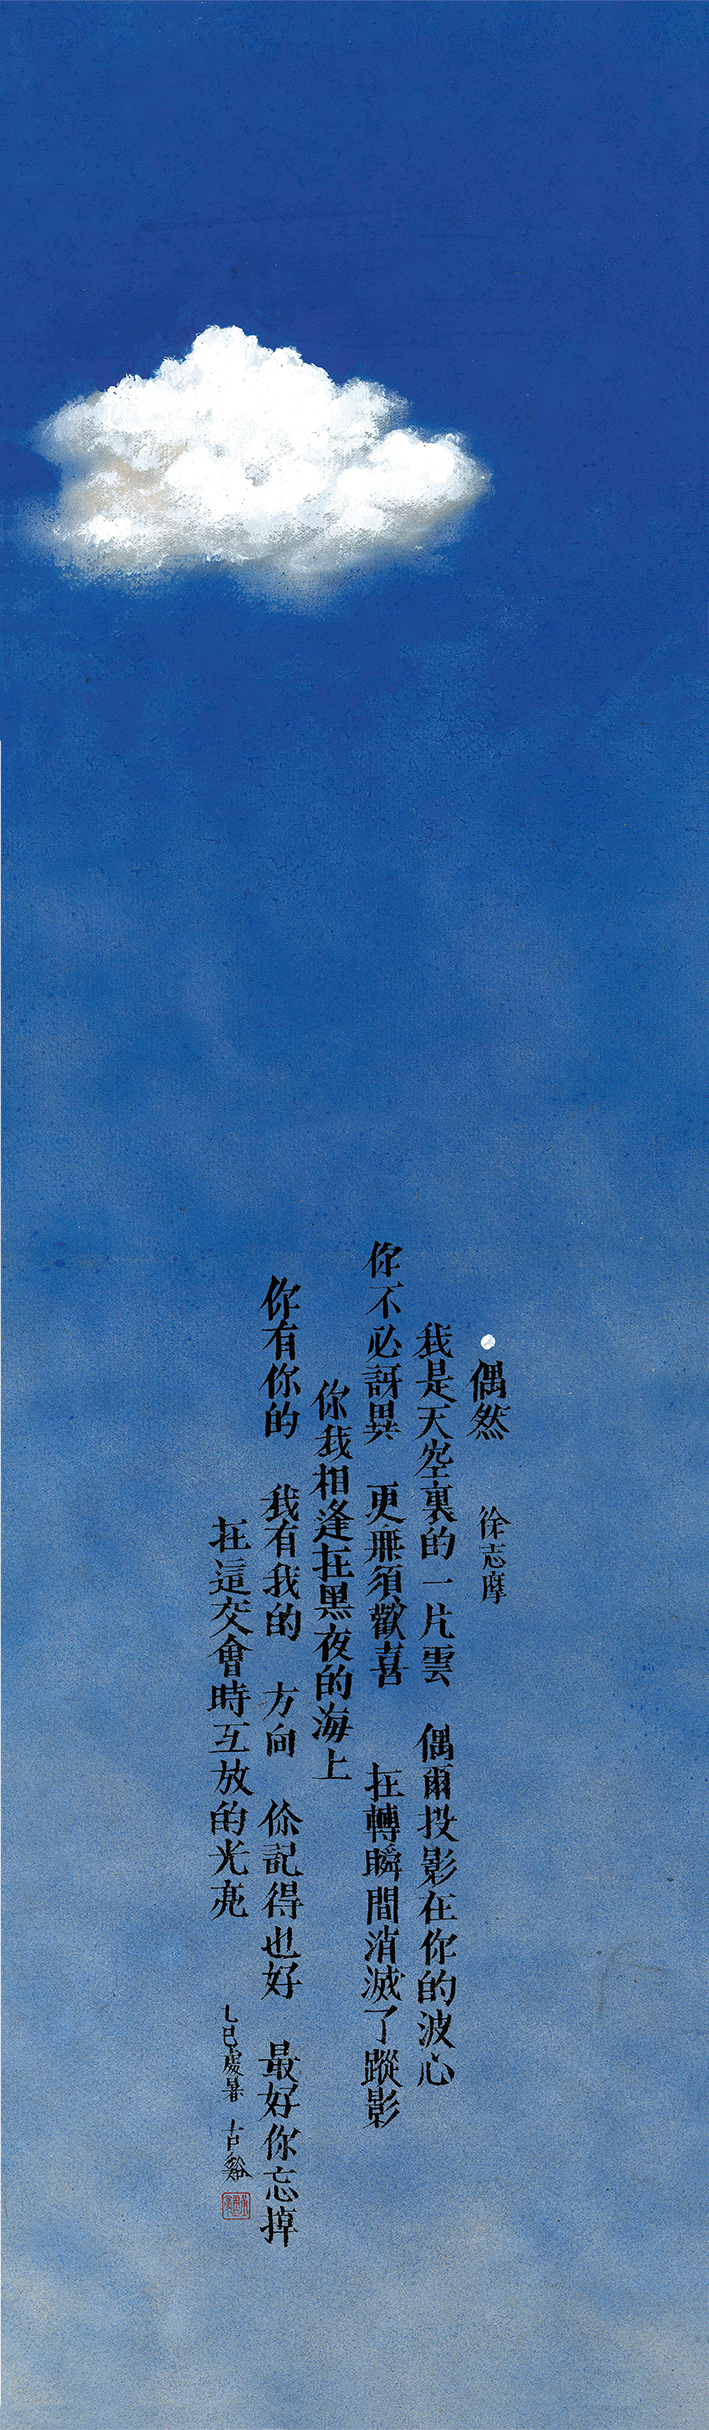 偶然 徐志摩
我是天空裏的一片雲 偶爾投影在你的波心
你不必訝異 更無須歡喜 在轉瞬間消滅了蹤影
你我相逢在黑夜的海上
你有你的 我有我的 方向 你記得也好 最好你忘掉
在這交會時互放的光亮
乙巳處暑 古谿